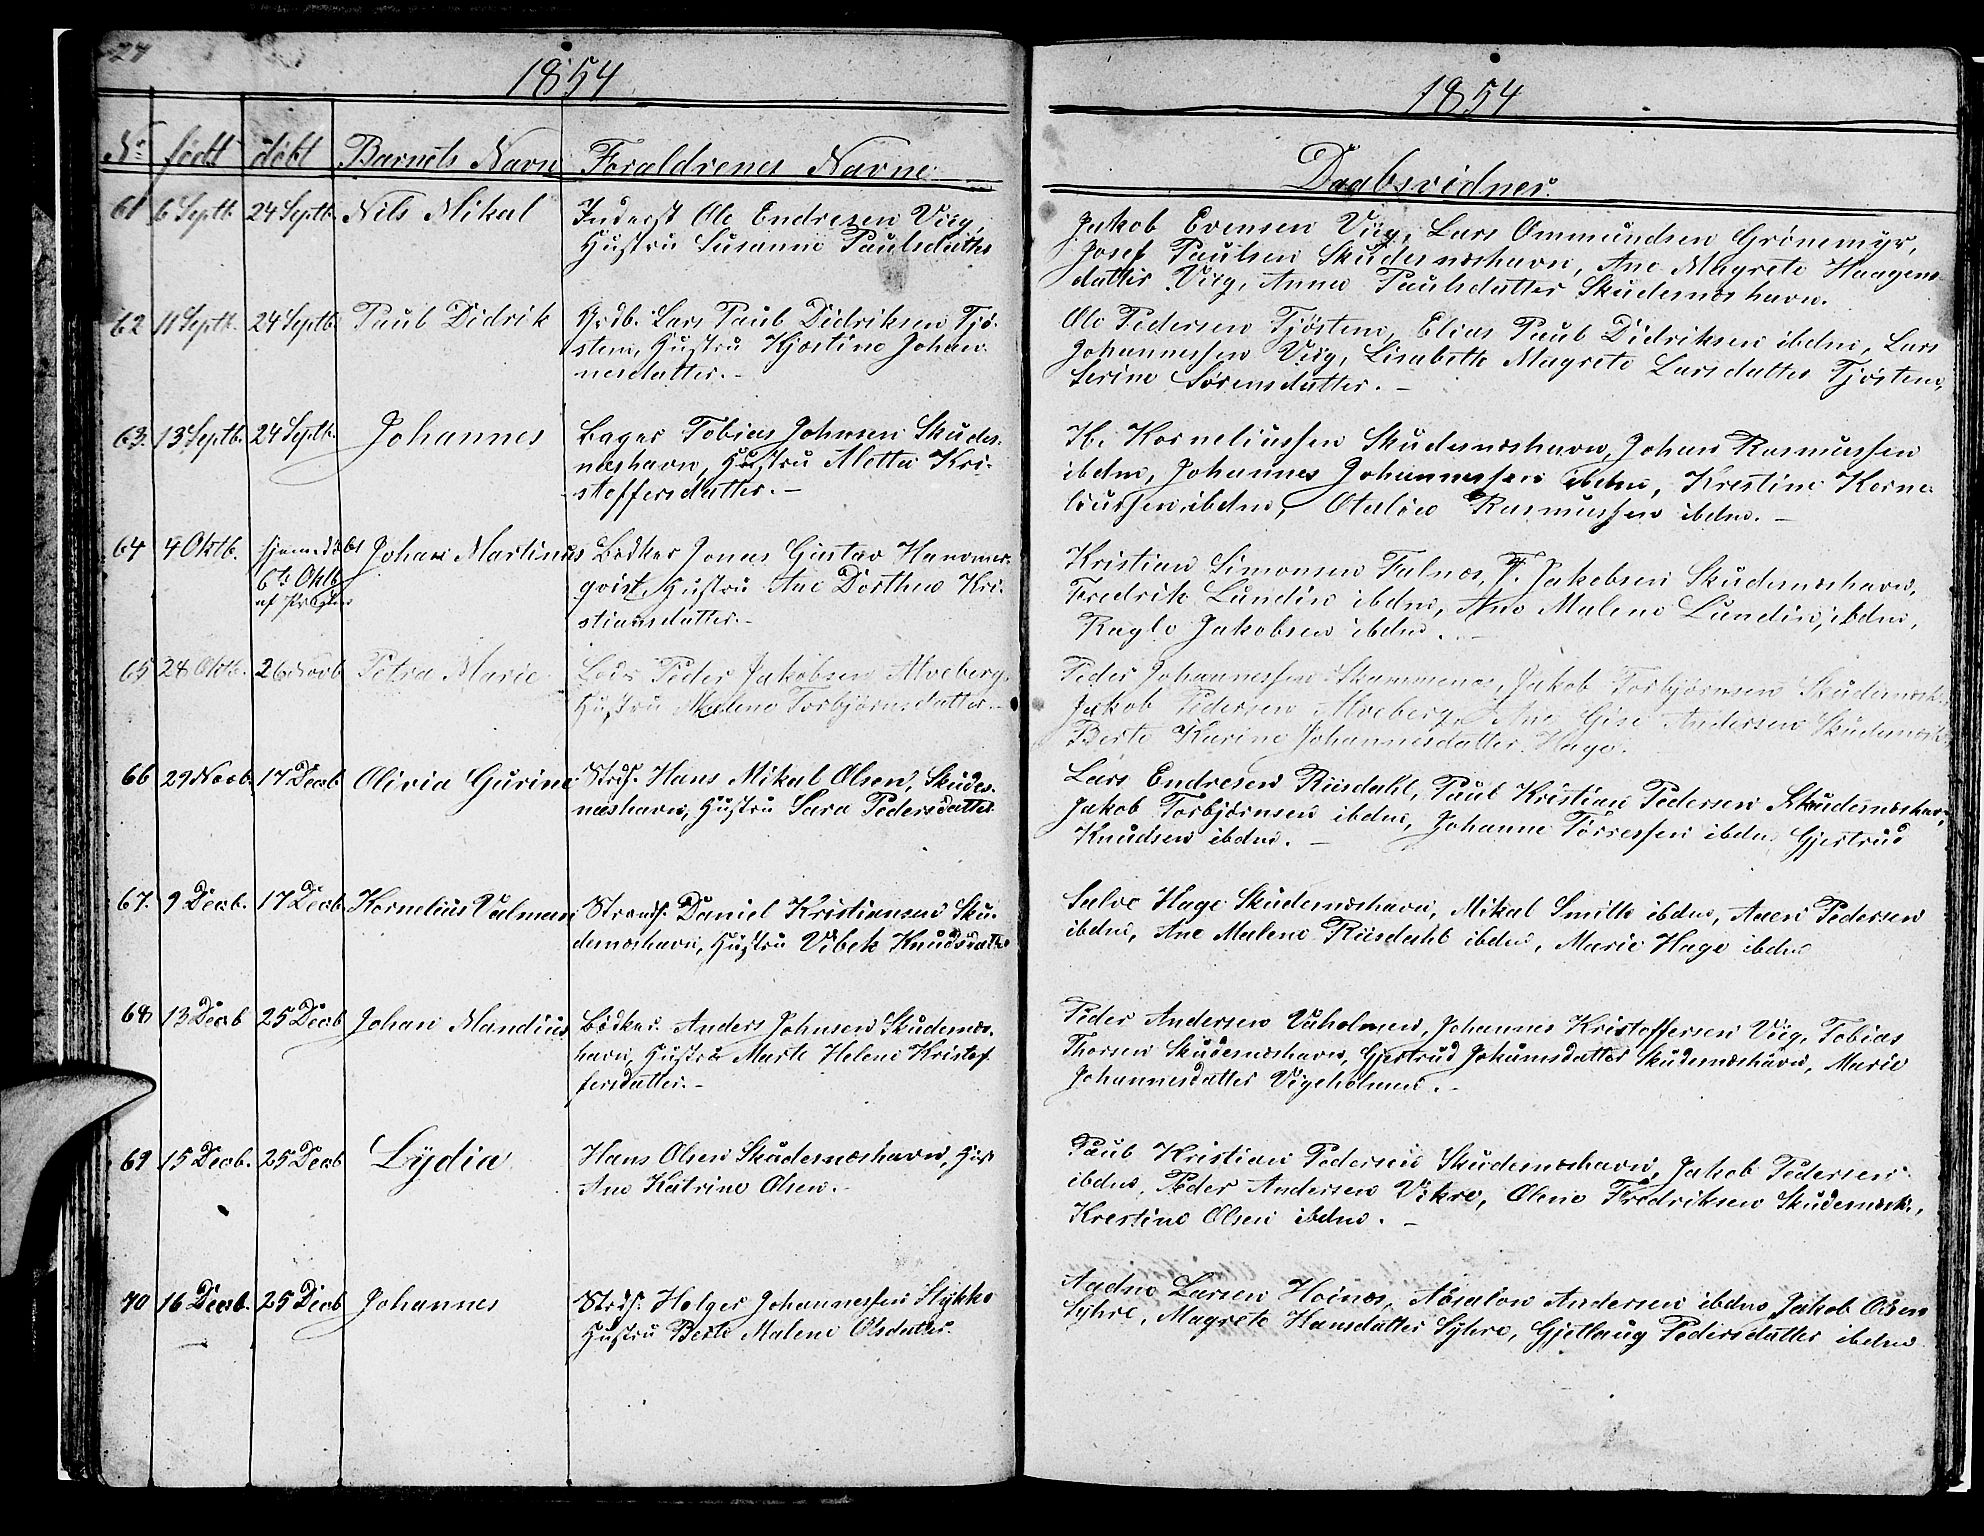 27
1854
No født døbt Barnets Navn Foraldrenes Navne
61 6 Septb. 24 Septb. Nils Mikal Inderst Ole Endresen Viig,
Hustru Susanne Paulsdatter
62 11 Septb. 24 Septb. Paul Didrik Grdb. Lars Paul Didriksen Tjø-
stem, Hustru Kjestine Johan-
nesdatter. -
63. 13 Septb. 24 Septb. Johannes Bager Tobias Johnsen Skudes-
næshavn, Hustru Metta Kri-
stoffersdatter. -
64 4 Oktb. hjemmedøbt Johan Martinus Bødker Jonas Gustav Hammer-
6te Oktb. qvist, Hustru Ane Dorthea Kri-
af Præsten stiansdatter. -
65 28 Oktb. 26 Novb Petra Marie Lods Peder Jakobsen Alveberg,
Hustru Malene Torbjørnsdatter. -
66 29 Novb. 17 Decb Olivia Gurine Strds. Hans Mikal Olsen, Skudes-
næshavn, Hustru Sara Pedersdatter
67. 9 Decb. 17 Decb Kornelius Valman Strands. Daniel Kristiansen Sku-
desnæshavn, Hustru Vibek Knudsdatter
68 13 Decb 25 Decb Johan Mandius Bødker Anders Johnsen Skudesnæs-
havn, Hustru Marte Helene Kristof
fersdatter. -
69 15 Decb. 25 Decb Lydia Hans Olsen Skudesnæshavn, Hust
Ane Katrine Olsen. -
70 16 Decb. 25 Decb Johannes Strds. Holger Johannessen Stykke
Hustru Berte Malene Olsdatter.
1854
Daabsvidner.
Jakob Evensen Viig, Lars Ommundsen Grønemyr,
Josef Paulsen Skudesnæshavn, Ane Magrete Haagens-
datter Viig, Anna Paulsdatter Skudesnæshavn.
Ole Pedersen Tjøstem, Elias Paul Didriksen ibdm, Lars
Johannessen Viig, Lisabeth Magrete Larsdatter Tjøstem,
Serine Sørensdatter. -
H. Korneliussen Skudesnæshavn, Johan Rasmussen
ibdm, Johannes Johannessen ibdm, Krestine Korne-
liussen ibdm, Rasmussen ibdm. -
Kristian Simonsen Falnæs, T. Jakobsen Skudesnæshavn,
Fredrik Lundin ibdm, Ane Malene Lundin, ibdm,
Jakobsen ibdm. -
Peder Johannessen, Jakob Torbjørnsen Skudesnæsh.,
Jakob Pedersen Alveberg, Ane Andersen Skudesnæsh
Berte Karine Johannesdatter Hage.
Lars Endresen Riisdahl, Paul Kristian Pedersen Skudesnæshavn,
Jakob Torbjørnsen ibdm, Johanne Torressen ibdm, Gjertrud
Knudsen ibdm. -
Salve Hage Skudesnæshavn, Mikal Smith ibdm, Aaen Pedersen
ibdm, Ane Malene Riisdahl ibdm, Marie Hage ibdm
Peder Andersen Vaholmen, Johannes Kristoffersen Viig, Tobias
Thorsen Skudesnæshavn, Gjertrud Johannsdatter Skudesnæshavn, Marie
Johannesdatter Vigeholmen. -
Paul Kristian Pedersen Skudesnæshavn, Jakob Pedersen
ibdm, Peder Andersen Vikre, Olene Fredriksen Skudesnæsh.,
Krestine Olsen ibdm. -
Aadne Larsen Hoinæs, Absalon Andersen ibdm, Jakob Olsen
Syhre, Magrete Hansdatter Syhre, Gjetlaug Pedersdatter ibdm